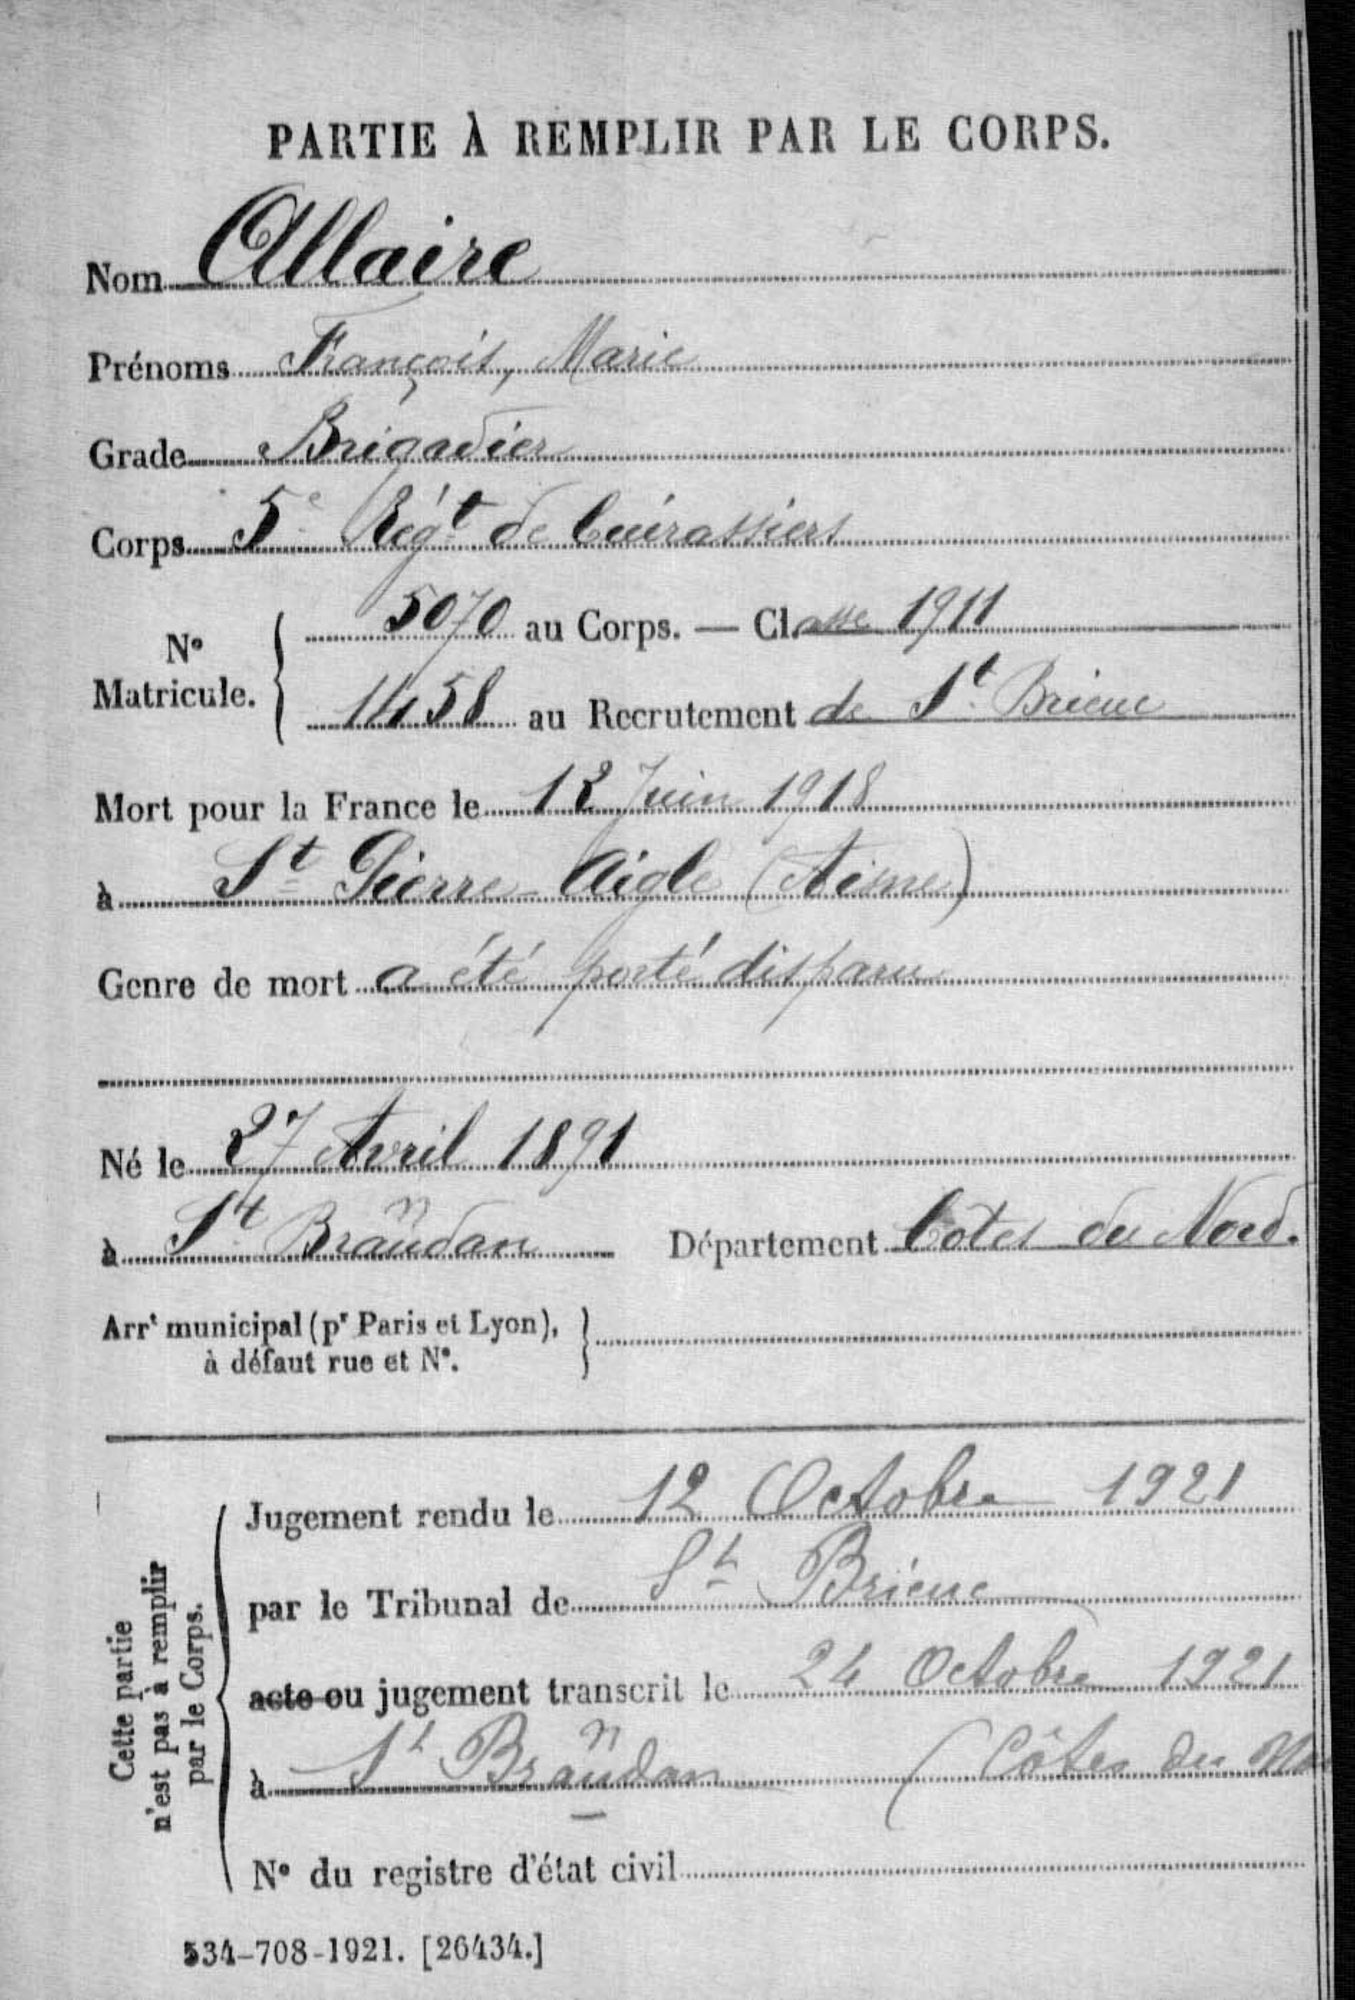 PARTIE À REMPLIR PAR LE CORPS.
Nom Allaire
Prénoms François, Marie
Grade Brigadier
Corps 5e Régt de Cuirassiers
No Matricule. 5070 au Corps. — Classe 1911
1458 au Recrutement de St Brieuc
Mort pour la France le 12 Juin 1918
à St Pierre-Aigle (Aisne)
Genre de mort a été porté disparu
Né le 27 Avril 1891
à St Brandan Département Côtes du Nord.
Arrt municipal (pr Paris et Lyon),
à défaut rue et No.
Cette partie
n'est pas à remplir
par le Corps.
Jugement rendu le 12 Octobre 1921
par le Tribunal de St Brieuc
acte ou jugement transcrit le 24 Octobre 1921
à St Brandan (Côtes du
No du registre d'état civil
534-708-1921. [26434.]